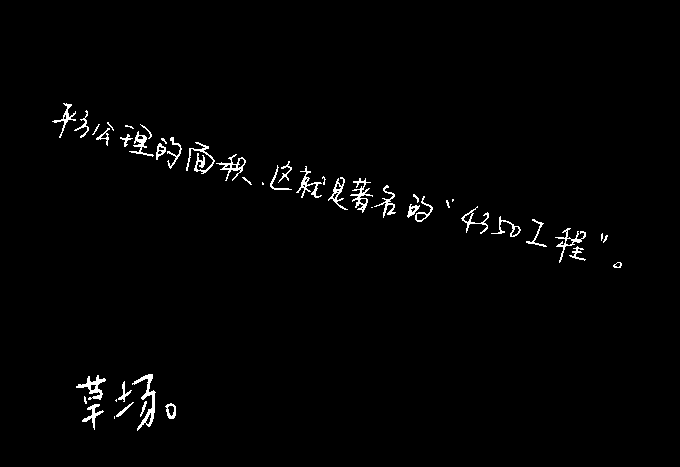 平方公理的面积、这就是著名的“4350工程”。
草场。